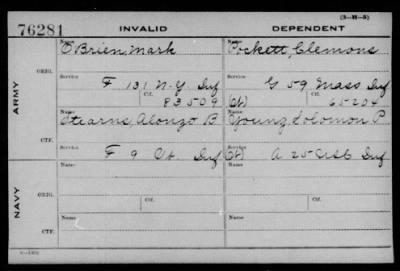 (3-H-5)
76281 INVALID DEPENDENT
ARMY
ORIG.
O'Brien, Mark Pockett, Clemons
Service Service
F 131 N.Y. Inf G 59 Mass Inf
Ctf. Ctf.
83509 (Ct) 65204
CTF.
Stearns, Alonzo B Young, Solomon P
Service Service
F 9 Vt Inf (Ct) A 25 Inf
NAVY
ORIG.
Name Name
Ctf. Ctf.
CTF.
Name Name